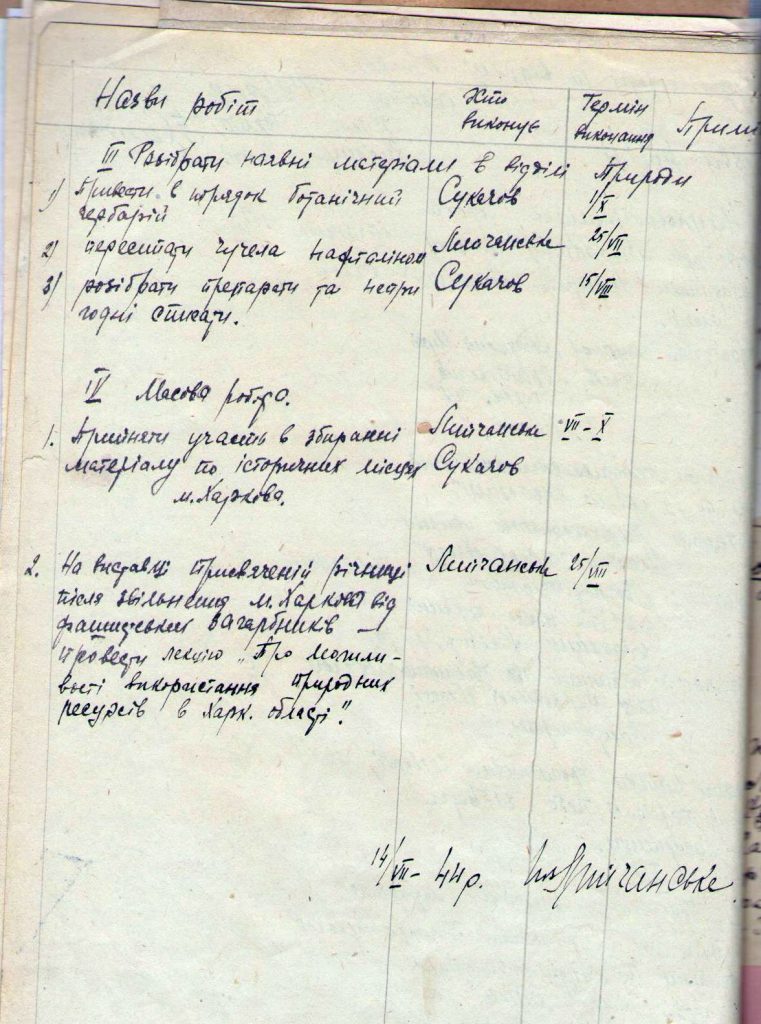 Назви робіт Хто виконує Термін виконання Примі
III Розібрати наявні матеріали в відділі Природи
1) Привести в порядок ботанічний Сукачов 1/X
гербарій
2) пересипати чучела нафталіном 25/VII
3) розібрати препарати та непри Сукачов 15/VIII
годні списати.
IV Масова робота.
1. Прийняти участь в збиранні VII - X
матеріалу по історичних місцях Сукачов
м. Харкова.
2. На виставці присвяченій річниці 25/VIII
після звільнення м. Харкова від
фашиських загарбників —
провести лекцію „Про можли-
вості використання природних
ресурсів в Харк. області".
14/VII - 44 р.